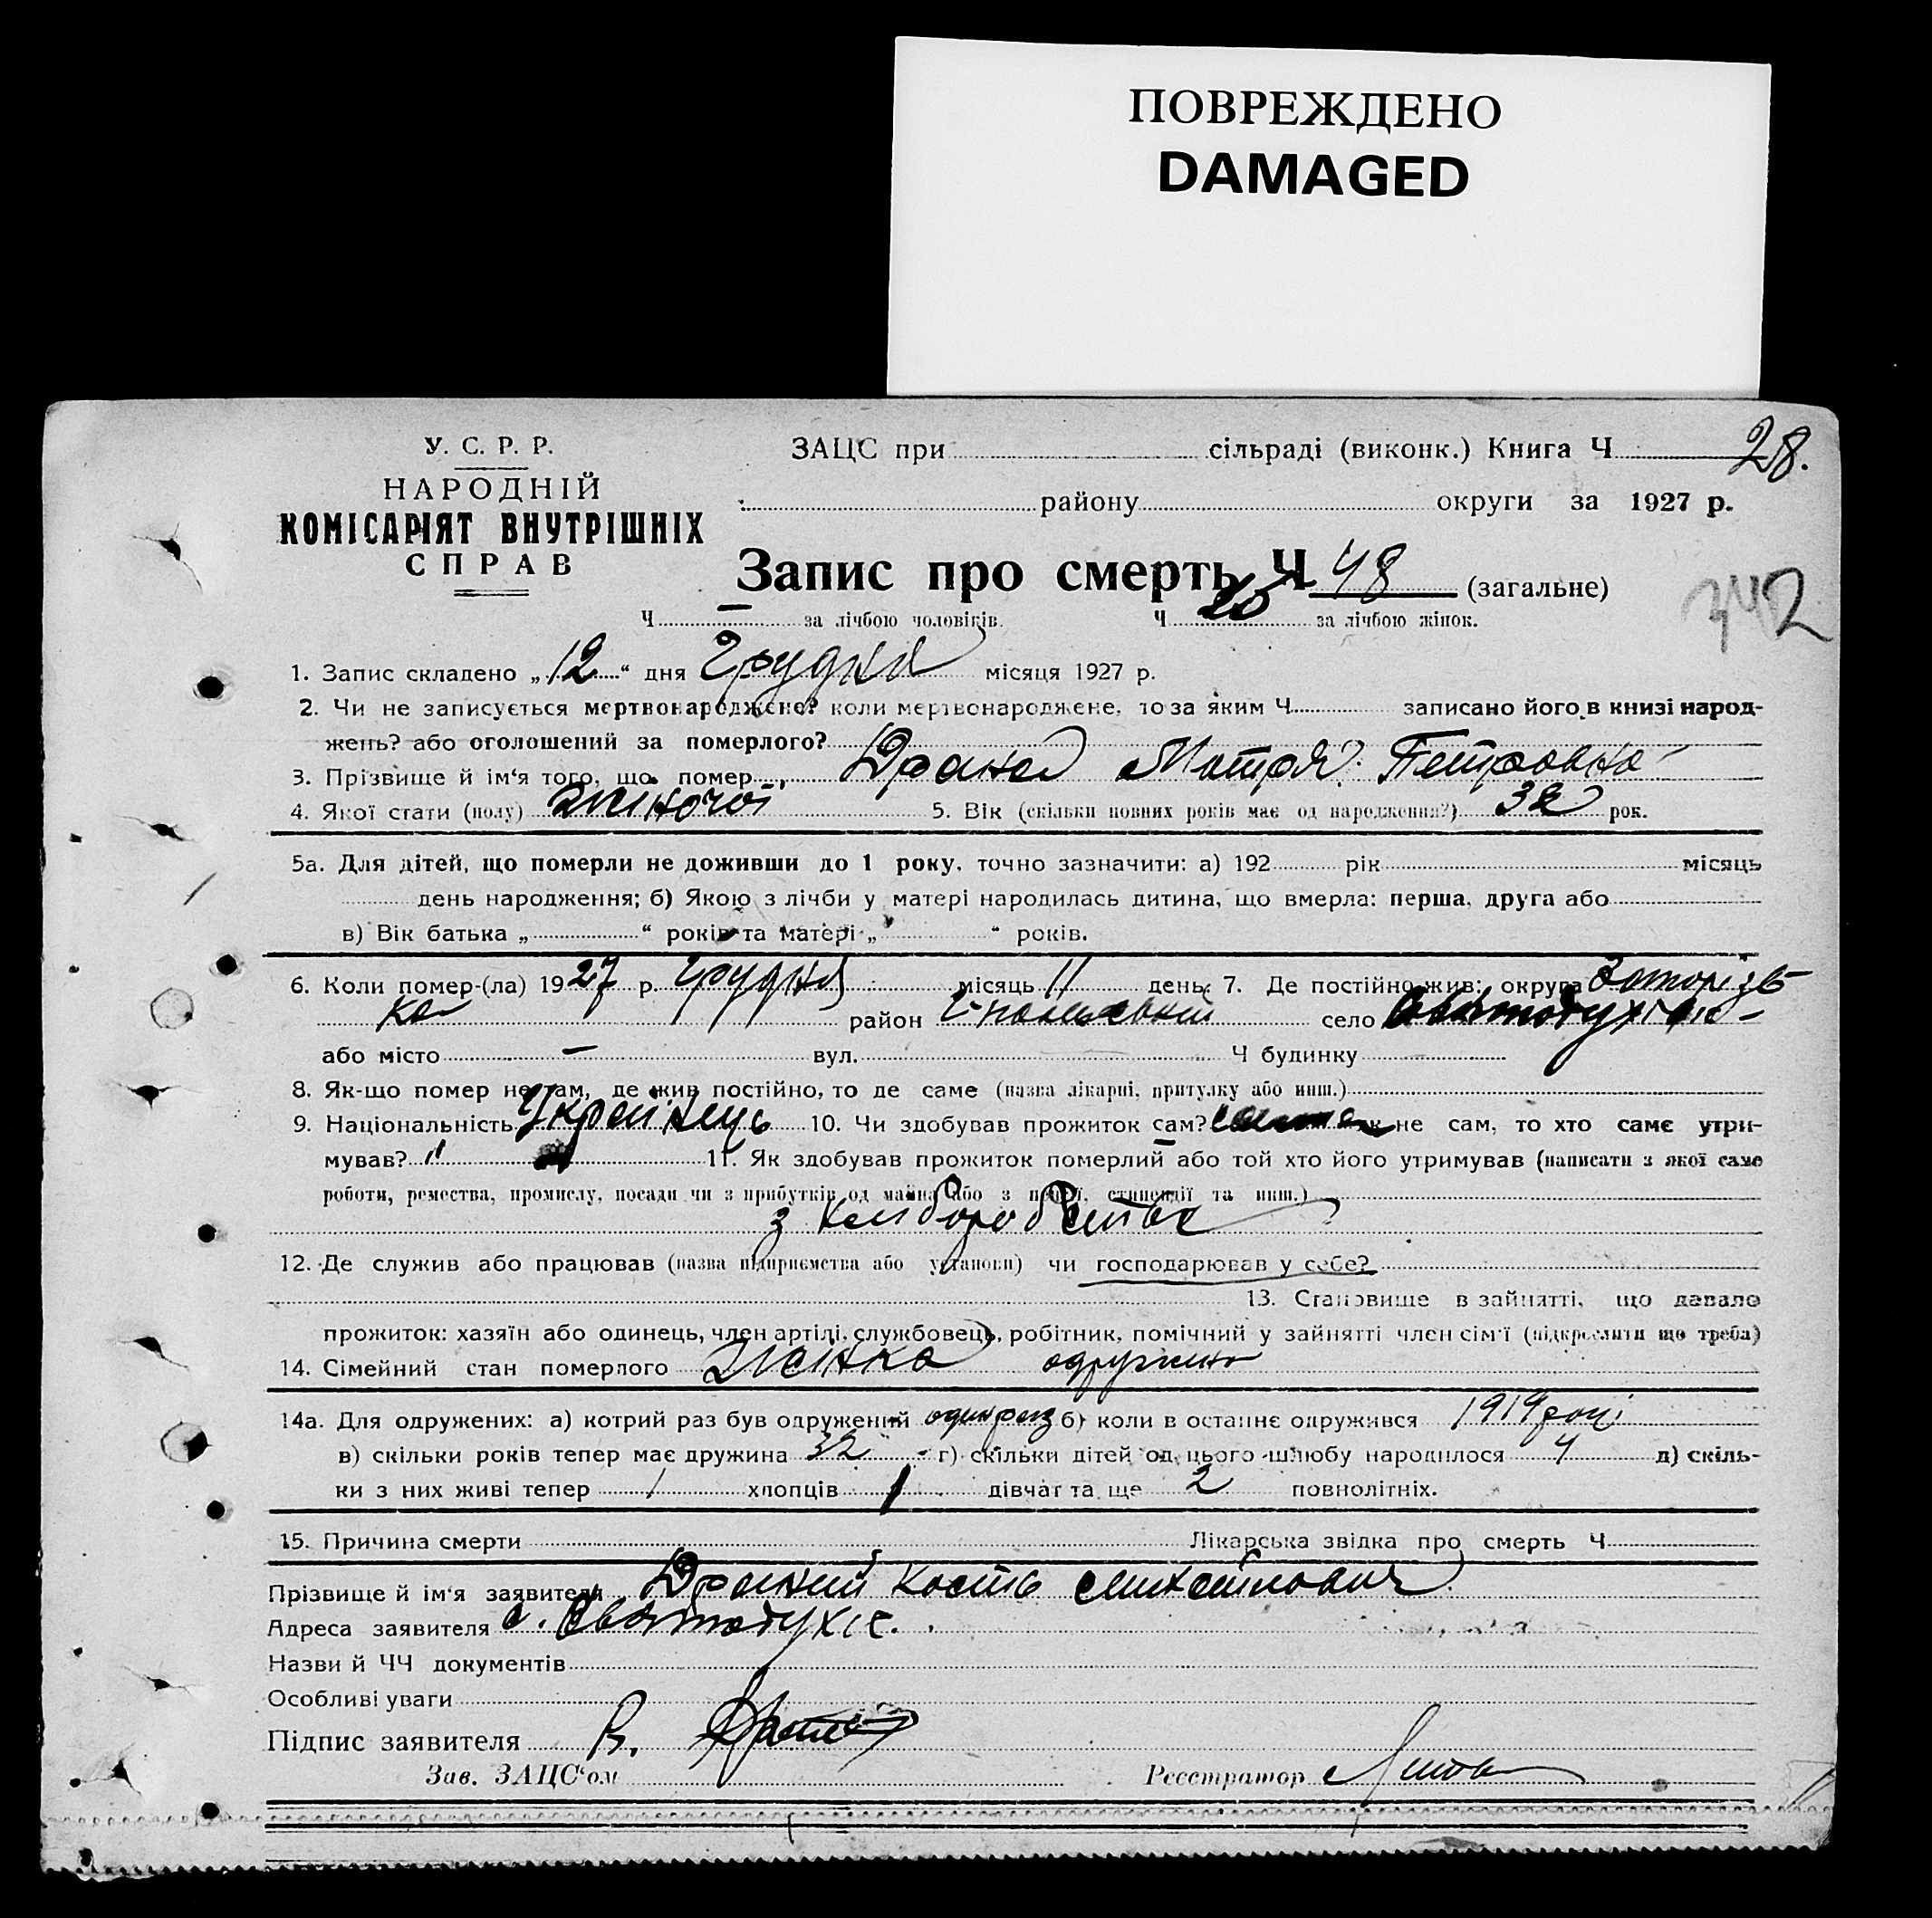 ПОВРЕЖДЕНО
DAMAGED
У. С. Р. Р.
НАРОДНІЙ
КОМІСАРІЯТ ВНУТРІШНІХ
СПРАВ
ЗАЦС при сільраді (виконк.) Книга Ч 28.
району округи за 1927 р.
Запис про смерть Ч 48 (загальне)
342
Ч — за лічбою чоловіків. Ч за лічбою жінок.
1. Запис складено „12“ дня Грудня місяця 1927 р.
2. Чи не записується мертвонароджене? коли мертвонароджене, то за яким Ч записано його в книзі народ-
жень? або оголошений за померлого?
3. Прізвище й ім‘я того, що помер Драна Мотря Петровна
4. Якої стати (полу) жіночої 5. Вік (скільки повних років має од народження?) 32 рок.
5а. Для дітей, що померли не доживши до 1 року, точно зазначити: а) 192 рік місяць
день народження; б) Якою з лічби у матері народилась дитина, що вмерла: перша, друга або
в) Вік батька „ “ років та матері „ “ років.
6. Коли помер-(ла) 1927 р. Грудня місяць 11 день; 7. Де постійно жив: округа Запорізь-
ка район село
або місто — вул. Ч будинку
8. Як-що помер не там, де жив постійно, то де саме (назва лікарні, притулку або инш.)
9. Національність Українець 10. Чи здобував прожиток сам? сама як не сам, то хто саме утри-
мував? " 11. Як здобував прожиток померлий або той хто його утримував (написати з якої саме
роботи, ремества, промислу, посади чи з прибутків од майна або з пенсії, стипендії та инш.)
з хліборобства
12. Де служив або працював (назва підприємства або установи) чи господарював у себе?
13. Становище в зайнятті, що давало
прожиток: хазяїн або одинець, член артілі, службовець, робітник, помічний у зайнятті член сім‘ї (підкреслити що треба)
14. Сімейний стан померлого Жінка одружена
14а. Для одружених: а) котрий раз був одружений один раз б) коли в останнє одружився 1919 році
в) скільки років тепер має дружина 32 г) скільки дітей од цього шлюбу народилося 4 д) скіль-
ки з них живі тепер 1 хлопців 1 дівчат та ще 2 повнолітніх.
15. Причина смерти Лікарська звідка про смерть Ч
Прізвище й ім‘я заявителя Драний Кость Михайлович
Адреса заявителя с. Святодухіс.
Назви й ЧЧ документів
Особливі уваги
Підпис заявителя
Зав. ЗАЦС‘ом Реєстратор